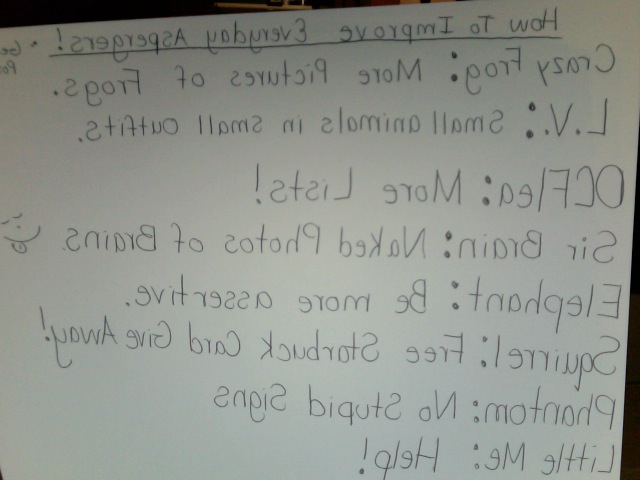 How To Improve Everyday Aspergers!
Crazy Frog: More Pictures of Frogs.
L.V.: Small animals in small outfits.
OCFlea: More Lists!
Sir Brain: Naked Photos of Brains
Elephant: Be more assertive.
Squirrel: Free Starbuck Card Give Away!
Phantom: No Stupid Signs
Little Me: Help!